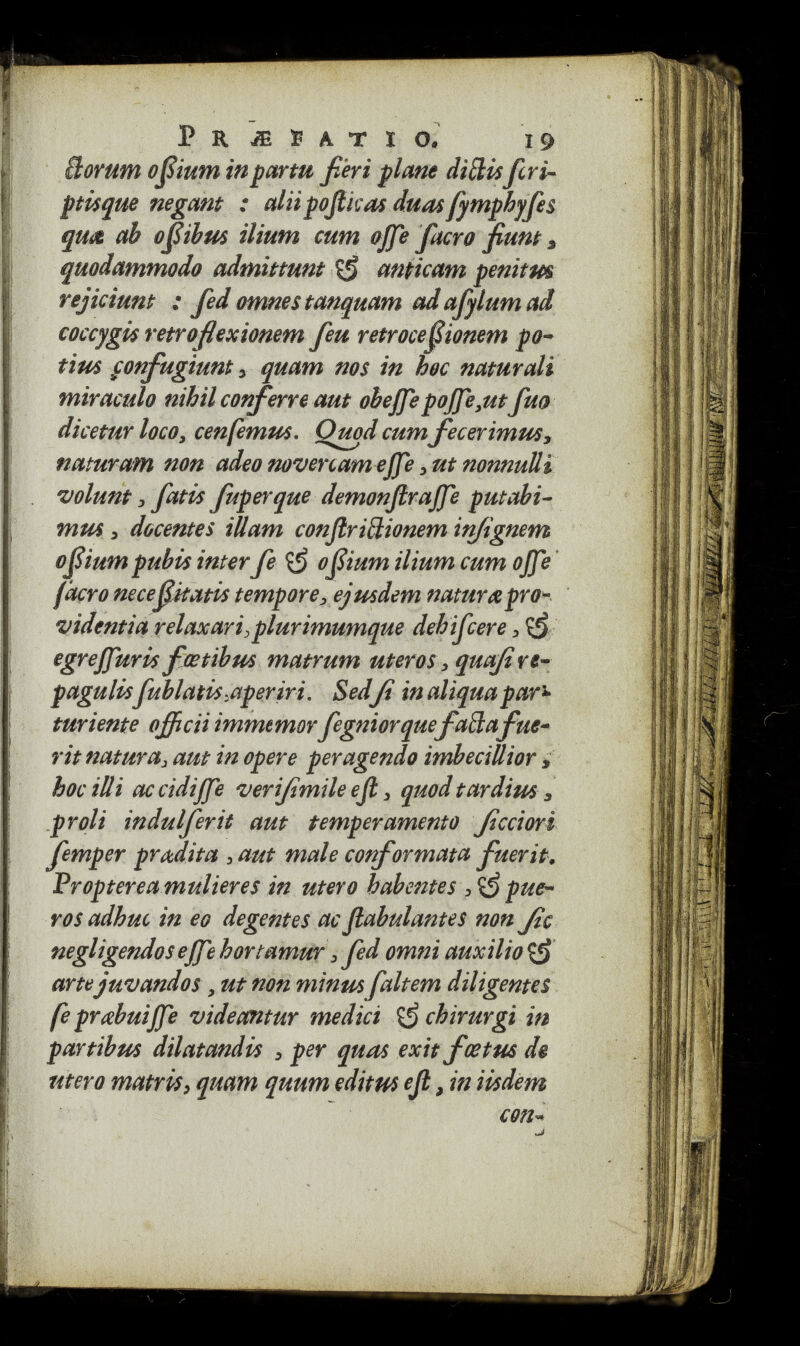 PRÆFATIO. 19
ctorum oſsium in partu fieri plane dictis ſcri-
ptisque negant : alii poſticas duas ſymphyſes
quæ ab oſsibus ilium cum oſſe ſacro fiunt,
quodammodo admittunt & anticam penitus
rejiciunt : ſed omnes tanquam ad aſylum ad
coccygis retroflexionem ſeu retroceſsionem po-
tius confugiunt, quam nos in hoc naturali
miraculo nihil conferre aut obeſſe poſſe, ut ſuo
dicetur loco, cenſemus. Quod cum fecerimus,
naturam non adeo novercam eſſe, ut nonnulli
volunt, ſatis ſuperque demonſtraſſe putabi-
mus, docentes illam conſtrictionem inſignem
oſsium pubis inter ſe & oſsium ilium cum oſſe
ſacro neceſsitatis tempore, ejusdem naturæ pro-
videntia relaxari, plurimumque dehiſcere, &
egreſſuris fœtibus matrum uteros, quaſi re-
pagulis ſublatis, aperiri. Sed ſi in aliqua par-
turiente officii immemor ſegniorque facta fue-
rit natura, aut in opere peragendo imbecillior,
hoc illi accidiſſe veriſimile eſt, quod tardius,
proli indulſerit aut temperamento ſicciori
ſemper prædita, aut male conformata fuerit.
Propterea mulieres in utero habentes, & pue-
ros adhuc in eo degentes ac ſtabulantes non ſic
negligendos eſſe hortamur, ſed omni auxilio &
arte juvandos, ut non minus ſaltem diligentes
ſe præbuiſſe videantur medici & chirurgi in
partibus dilatandis, per quas exit fœtus de
utero matris, quam quum editus eſt, in iisdem
con-